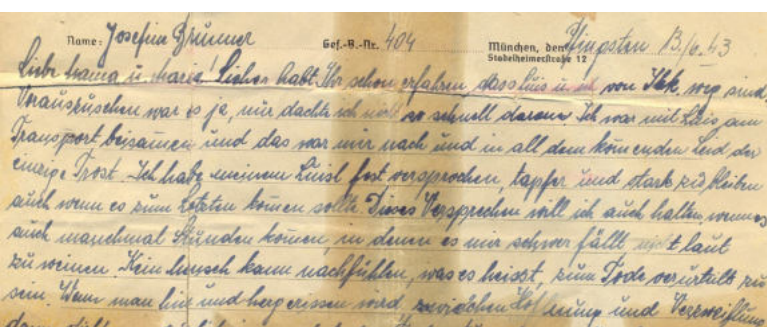 Name: Josefine Brunner Gef.-B.-Nr. 404 München, den Pfingsten 13./6. 43
Stadelheimerstraße 12
Liebe Mama u. Maria! Sicher habt Ihr schon erfahren, dass Luis u. ich von Ibk. weg sind,
Vorauszusehen war es ja, nur dachte ich nicht so schnell daran. Ich war mit Luis am
Transport beisamen und das war mir nach und in all dem komenden Leid der
einzige Trost. Ich habe meinem Luisl fest versprochen, tapfer und stark zu bleiben
auch wenn es zum Letzten komen sollte. Dieses Versprechen will ich auch halten wenn es
auch manchmal Stunden komen, in denen es mir schwer fällt nicht laut
zu weinen. Kein Mensch kann nachfühlen, was es heisst, zum Tode verurteilt zu
sein. Wenn man hin und hergerissen wird zwischen Hoffnung und Verzweiflung